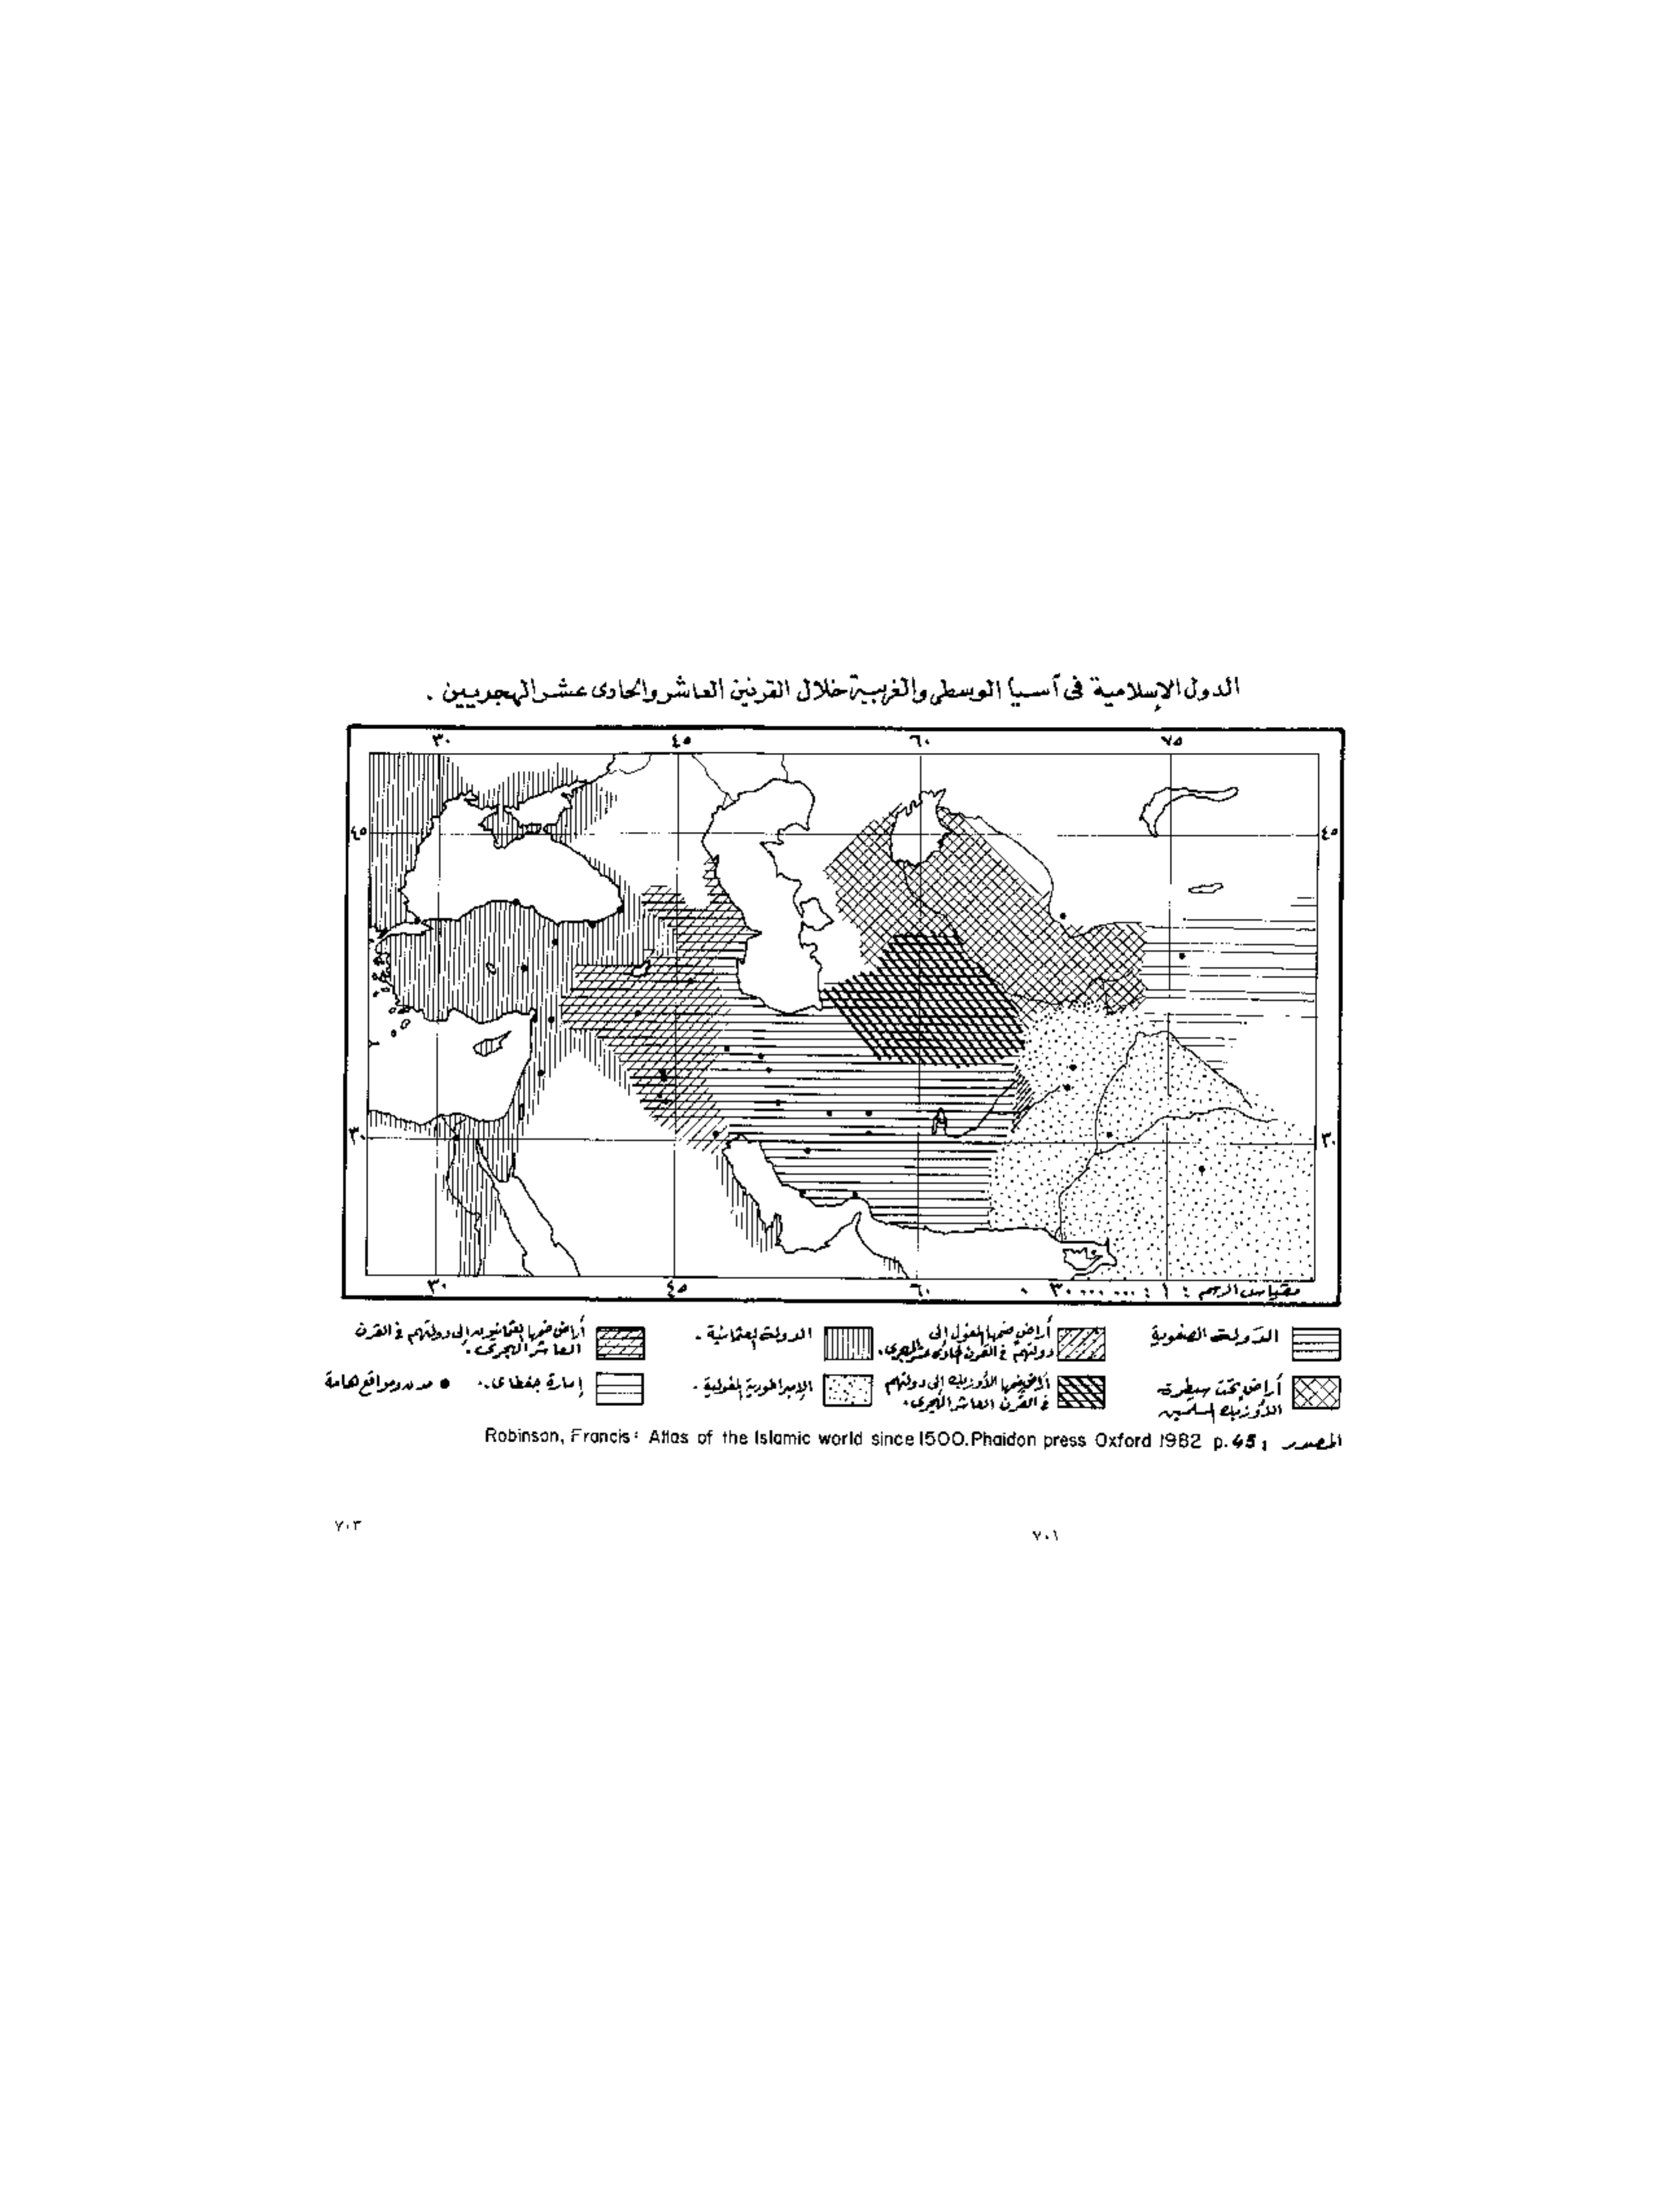 الدول الإسلامية فى آسيا الوسطى والغربية خلال القرنين العاشر والحادى عشر الهجريين .
٣٠ ٤٥ ٦٠ ٧٥
٤٥ ٤٥
٣٠ ٣٠
٣٠ ٤٥ ٦٠ مقياس الرسم : ١ : ٣٠٠٠٠٠٠٠
الدولة الصفوية
أراض ضمها المغول إلى
دولتهم فى القرن الحادى عشر الهجرى .
الدولة العثمانية .
أراض ضمها العثمانيون إلى دولتهم فى القرن
العاشر الهجرى .
أراض تحت سيطرة
الأوزبك المسلمين
أراض ضمها الأوزبك إلى دولتهم
فى القرن العاشر الهجرى .
الإمبراطورية المغولية .
إمارة جغطاى .
مدن ومواقع هامة
المصدر : Robinson, Francis: Atlas of the Islamic world since 1500. Phaidon press Oxford 1982 p. 45
٧٠١
٧٠٣